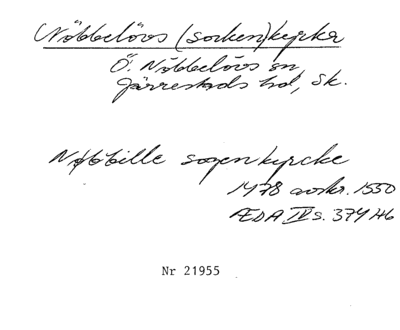 Nöbbelövs (socken)kyrka
Ö. Nöbbelövs sn,
Järrestads hd, Sk.
Nøbbille sogenkyrcke
1478 avskr. 1550
ÆDA IV s. 379 H6
Nr 21955